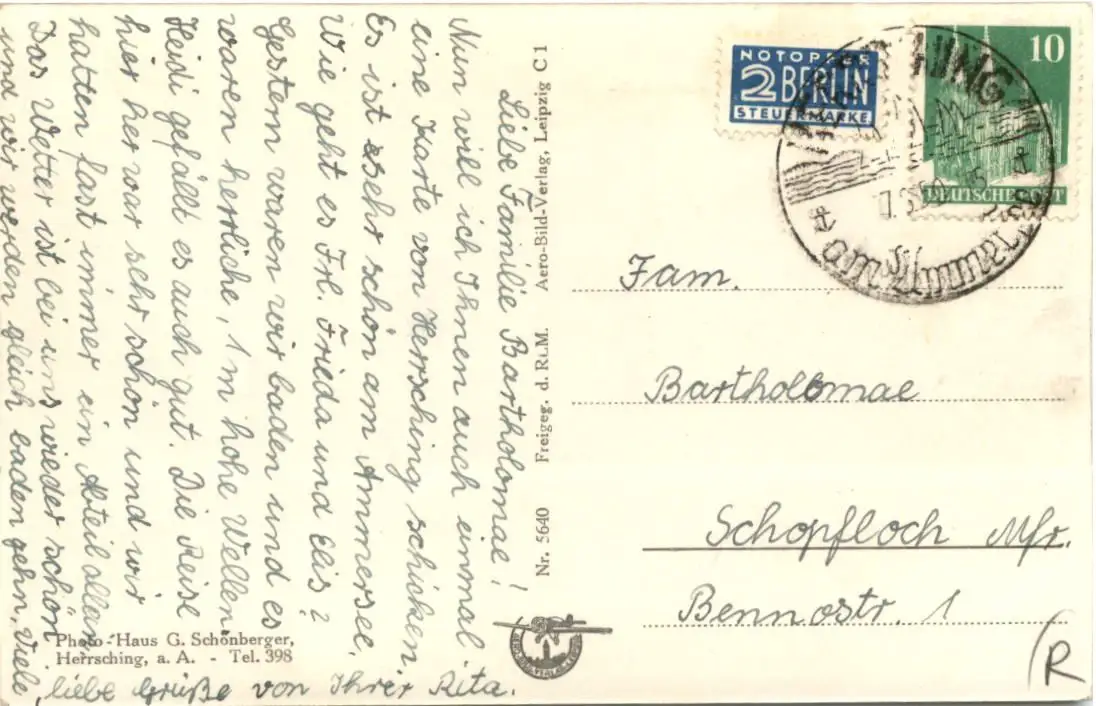 Liebe Familie Bartholomae!
Nun will ich Ihnen auch einmal
eine Karte von Herrsching schicken.
Es ist sehr schön am Ammersee.
Wie geht es Frl. Frieda und Elis?
Gestern waren wir baden und es
waren herrliche, 1 m hohe Wellen.
Heidi gefällt es auch gut. Die Reise
hier her war sehr schön und wir
hatten fast immer ein Abteil allein.
Das Wetter ist bei uns wieder schön
und wir werden gleich baden gehn. Viele
liebe Grüße von Ihrer Rita.
Photo-Haus G. Schönberger,
Herrsching, a. A. - Tel. 398
Nr. 5640 Freigeg. d. RLM. Aero-Bild-Verlag, Leipzig C 1
NOTOPFER
2 BERLIN
STEUERMARKE
10
DEUTSCHE POST
am Ammersee
Fam.
Bartholomae
Schopfloch Mfr.
Bennostr. 1
R